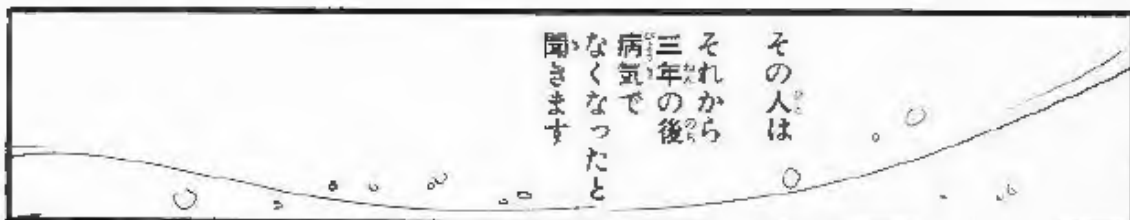 その人は
それから
三年の後
病気で
なくなったと
聞きます